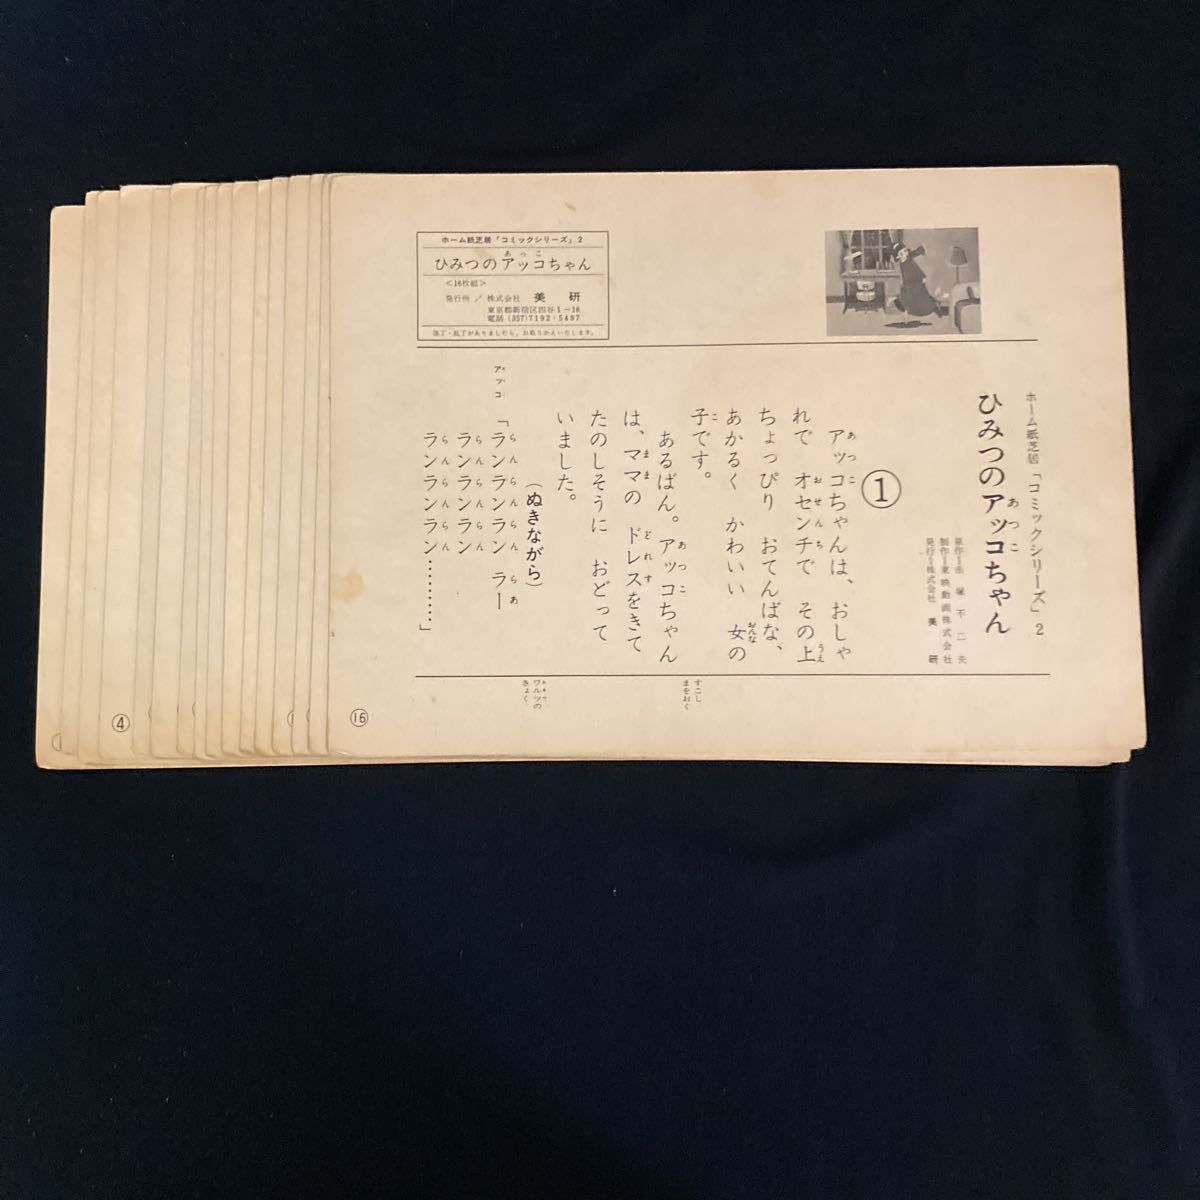 ホーム紙芝居「コミックシリーズ」2
ひみつのアッコちゃん
＜16枚組＞
発行所／株式会社 美研
東京都新宿区四谷1－18
電話(357)7192・5497
落丁・乱丁がありましたら、お取りかえいたします。
ホーム紙芝居「コミックシリーズ」2
ひみつのアッコちゃん
原作＝赤塚不二夫
制作＝東映動画株式会社
発行＝株式会社 美研
①
アッコちゃんは、おしゃ
れで オセンチで その上
ちょっぴり おてんばな、
あかるく かわいい 女の
子です。
あるばん。アッコちゃん
は、ママの ドレスをきて
たのしそうに おどって
いました。
(ぬきながら)
アッコ「ランランラン ラー
ランランラン
ランランラン…………」
すこし
まをおく
ワルツの
きょく
⑯
④